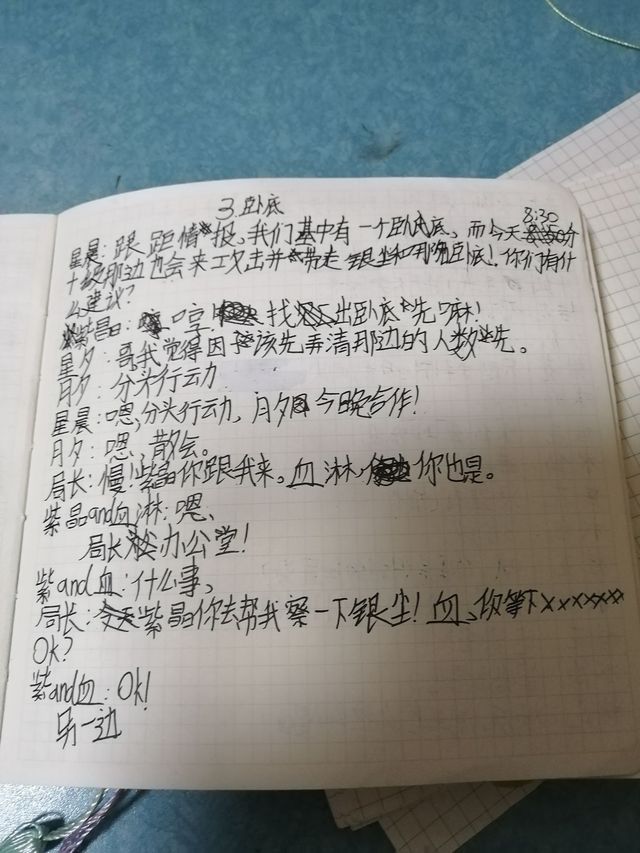 3.卧底
8:30
星晨：跟距情报，我们基中有一个卧底，而今天分
十级那边也会来工攻击并带走银尘和那晚卧底！你们有什
么建议？
紫晶：哼！找出卧底先嘛！
星夕：哥，我觉得因该先弄清那边的人数先。
月夕：分头行云力
星晨：嗯，分头行动，月夕今晚合作！
月夕：嗯，散会。
局长：慢！紫晶你跟我来。血淋，你也是。
紫晶and血淋：嗯、
局长办公堂！
紫and血：什么事、
局长：紫晶你去帮我察一下银尘！血、你等下xxxxxx
Ok？
紫and血：Ok！
另一边